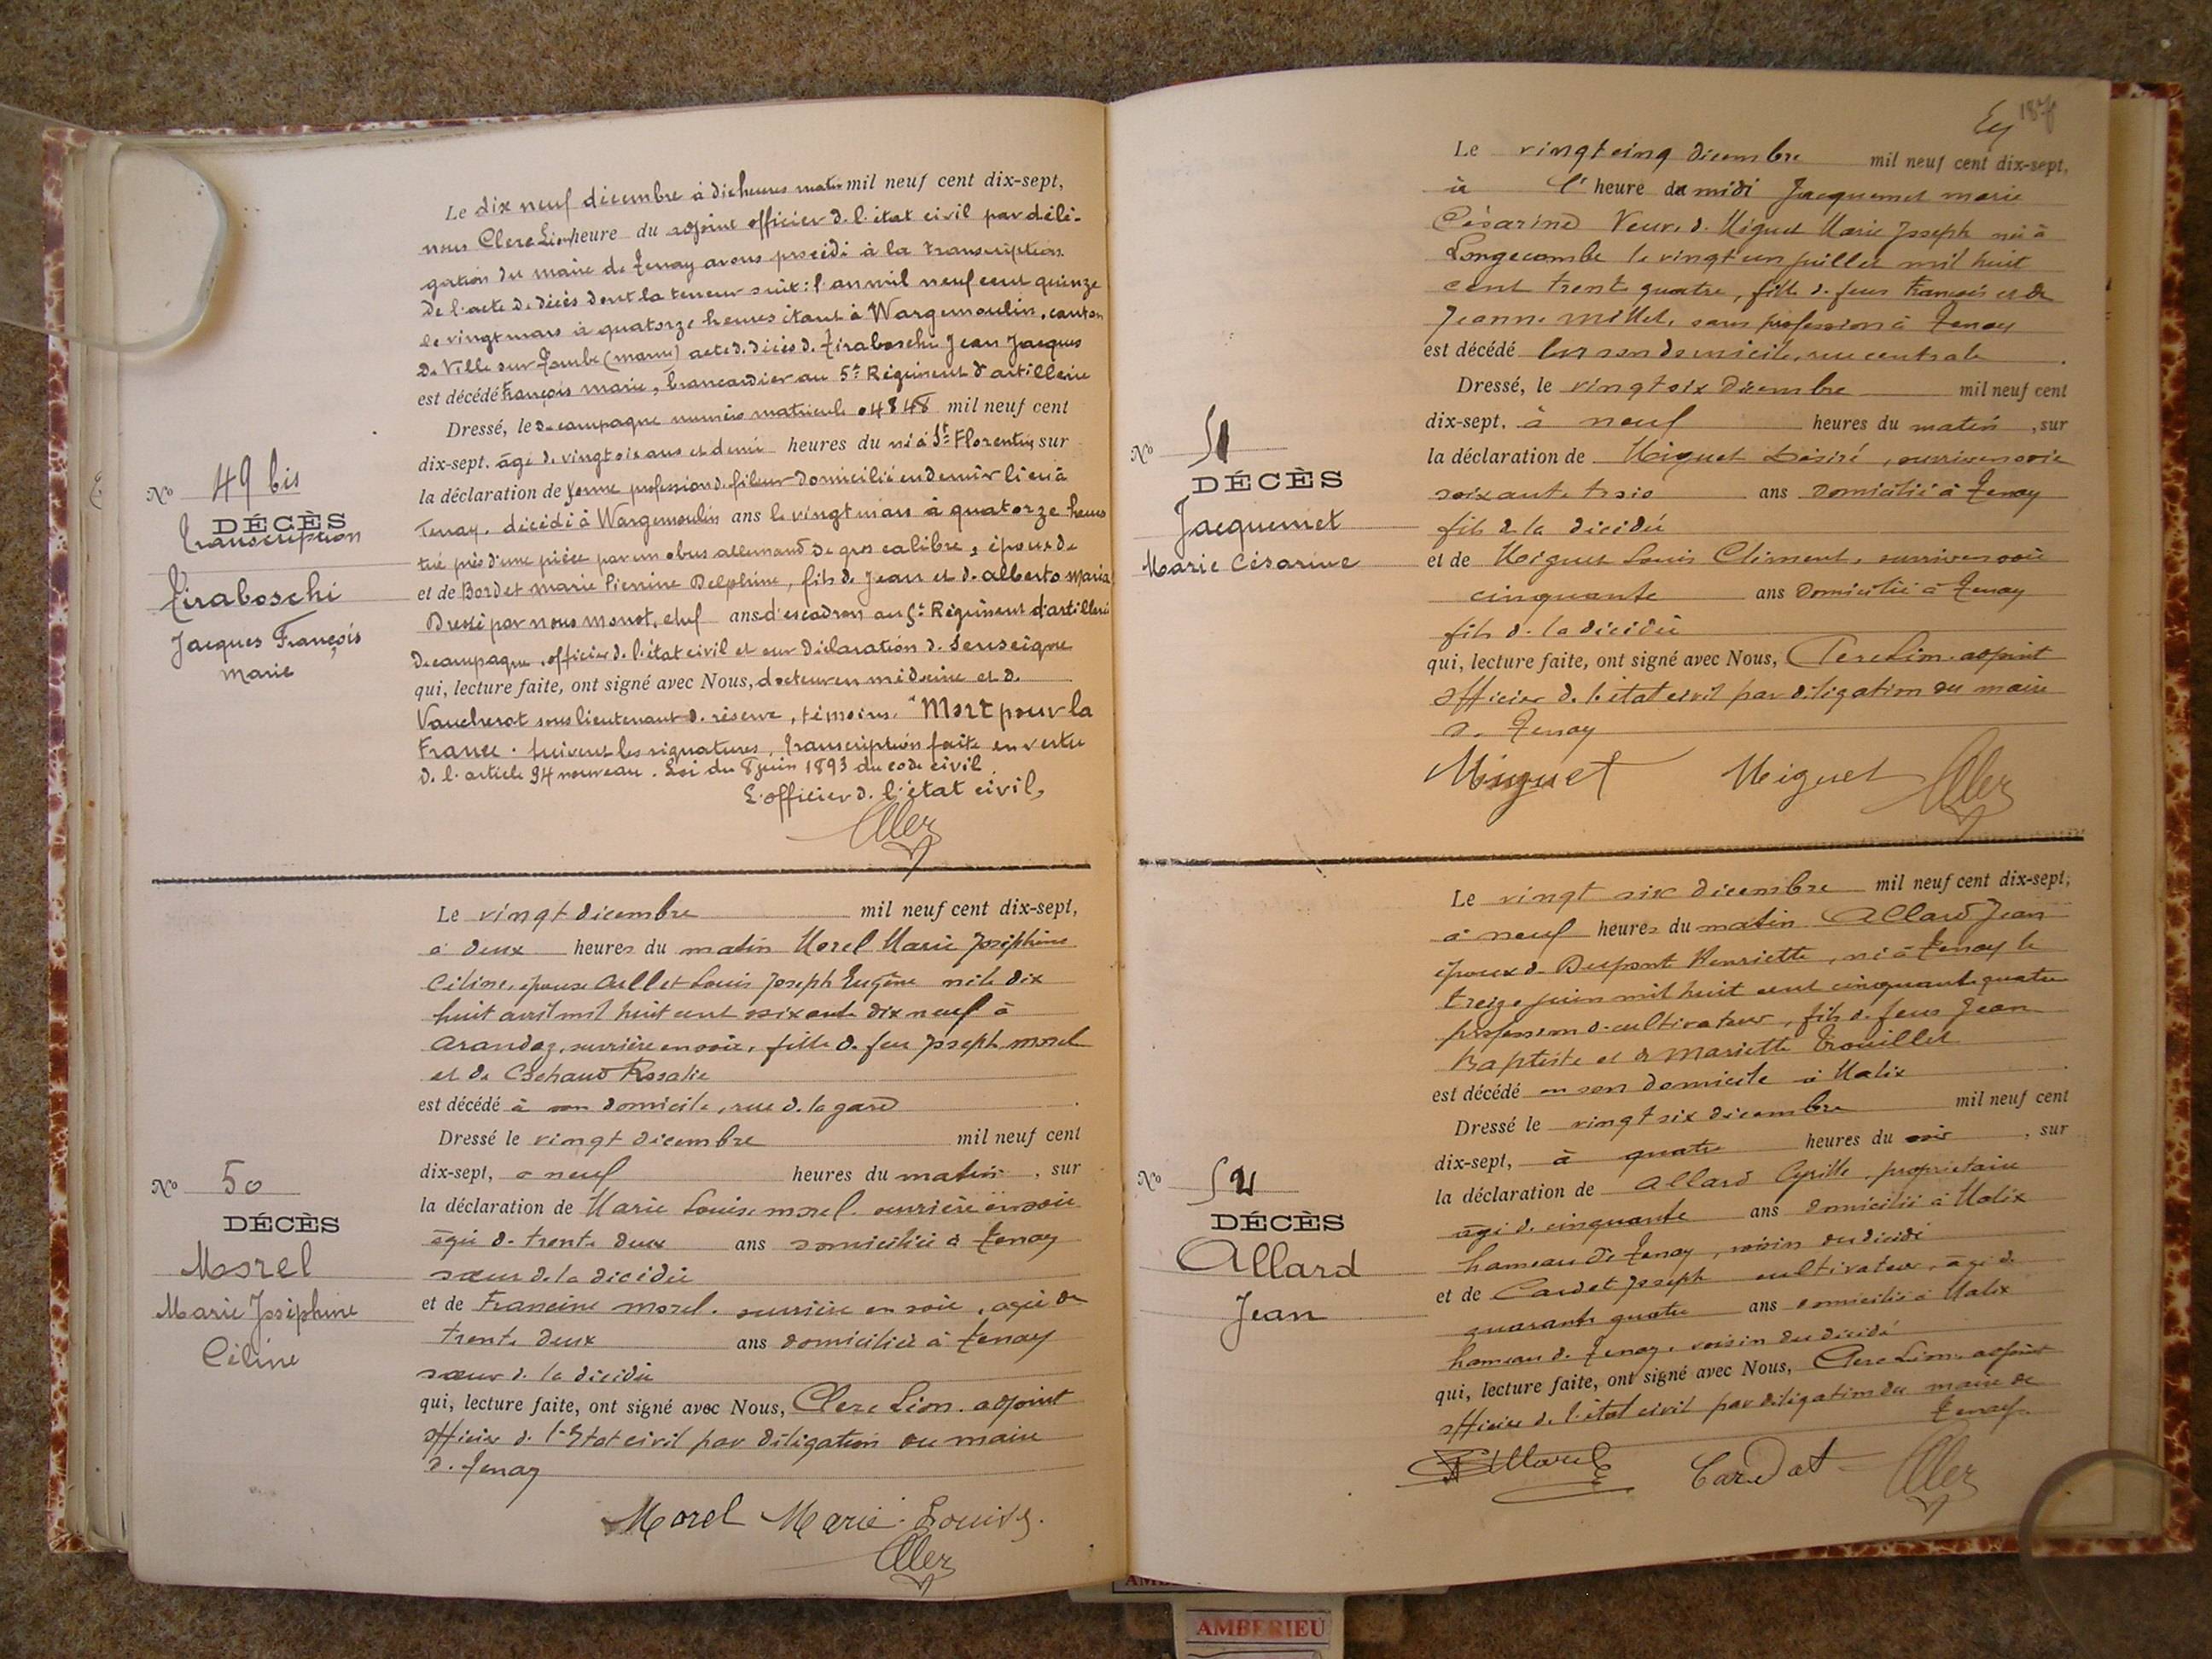 Le dix neuf décembre à dix heures matin mil neuf cent dix-sept,
nous Clerc Léon heure du adjoint officier de l'état civil par délé-
gation du maire de Tenay avons procédé à la transcription
de l'acte de décès dont la teneur suit: l'an mil neuf cent quinze
le vingt mars à quatorze heures étant à Wargemoulin, canton
de Ville sur Tourbe (marne) acte de décès de Tiraboschi Jean Jacques
est décédé François marie, brancardier au 5e Régiment d'artillerie
Dressé, le de campagne numéro matricule 04848 mil neuf cent
dix-sept. âgé de vingt six ans et demi heures du né à St Florentin, sur
la déclaration de Yonne profession de fileur domicilié en dernier lieu à
Tenay, décédé à Wargemoulin ans le vingt mars à quatorze heures
tué près d'une pièce par un obus allemand de gros calibre, époux de
et de Bordet marie Pierrine Delphine, fils de Jean et de Alberto Maria
Dressé par nous Monot, chef ans d'escadron au 5e Régiment d'artillerie
de campagne, officier de l'état civil et sur déclaration de Senseigne
qui, lecture faite, ont signé avec Nous, docteur en médecine et de
Vaucherot sous lieutenant de réserve, témoins. "Mort pour la
France. suivent les signatures, Transcription faite en vertu
de l'article 94 nouveau. Loi du 8 juin 1893 du code civil
L'officier de l'état civil,
No 49 bis
DÉCÈS
Transcription
Tiraboschi
Jacques François
Marie
Le vingt décembre mil neuf cent dix-sept,
à deux heures du matin Morel Marie Joséphine
Céline, épouse Louis Joseph Eugène née le dix
huit avril mil huit cent soixante dix neuf à
Arandaz, ouvrière en soie, fille de feu Joseph morel
et de Cochaud Rosalie
est décédé à son domicile, rue de la gare
Dressé le vingt décembre mil neuf cent
dix-sept, à neuf heures du matin, sur
la déclaration de Marie Louise morel ouvrière en soie
âgée de trente deux ans domiciliée à Tenay
sœur de la décédée
et de Francine morel. ouvrière en soie, âgée de
trente deux ans domiciliée à Tenay
sœur de la décédée
qui, lecture faite, ont signé avec Nous, Clerc Léon. adjoint
officier de l'Etat civil par délégation du maire
de Tenay
Morel Marie Louise
No 50
DÉCÈS
Morel
Marie Joséphine
Céline
187
Le vingt cinq décembre mil neuf cent dix-sept,
à l'heure de midi Jacquemet marie
Césarine Veuve de Miguet Marie Joseph née à
Longecombe le vingt un juillet mil huit
cent trente quatre, fille de feus François et de
Jeanne Millet, sans profession à Tenay
est décédé en son domicile, rue centrale
Dressé, le vingt six décembre mil neuf cent
dix-sept, à neuf heures du matin, sur
la déclaration de Miguet Désiré, ouvrier en soie
soixante trois ans domicilié à Tenay
fils de la décédée
et de Miguet Louis Clément, ouvrier en soie
cinquante ans domicilié à Tenay
fils de la décédée
qui, lecture faite, ont signé avec Nous, Clerc Léon. adjoint
officier de l'état civil par délégation du maire
de Tenay
Miguet Miguet
No 51
DÉCÈS
Jacquemet
Marie Césarine
Le vingt six décembre mil neuf cent dix-sept,
à neuf heures du matin Allard Jean
époux de Dupont Henriette, né à Tenay le
treize juin mil huit cent cinquante quatre
profession de cultivateur, fils de feus Jean
Baptiste et de Mariette Trouillet
est décédé en son domicile à Malix
Dressé le vingt six décembre mil neuf cent
dix-sept, à quatre heures du soir, sur
la déclaration de Allard Cyrille, propriétaire
âgé de cinquante ans domicilié à Malix
hameau de Tenay, voisin du décédé
et de Cardet Joseph cultivateur, âgé de
quarante quatre ans domicilié à Malix
hameau de Tenay, voisin du décédé
qui, lecture faite, ont signé avec Nous, Clerc Léon, adjoint
officier de l'état civil par délégation du maire de
Tenay
Allard Cardat
No 52
DÉCÈS
Allard
Jean
AMBERIEU